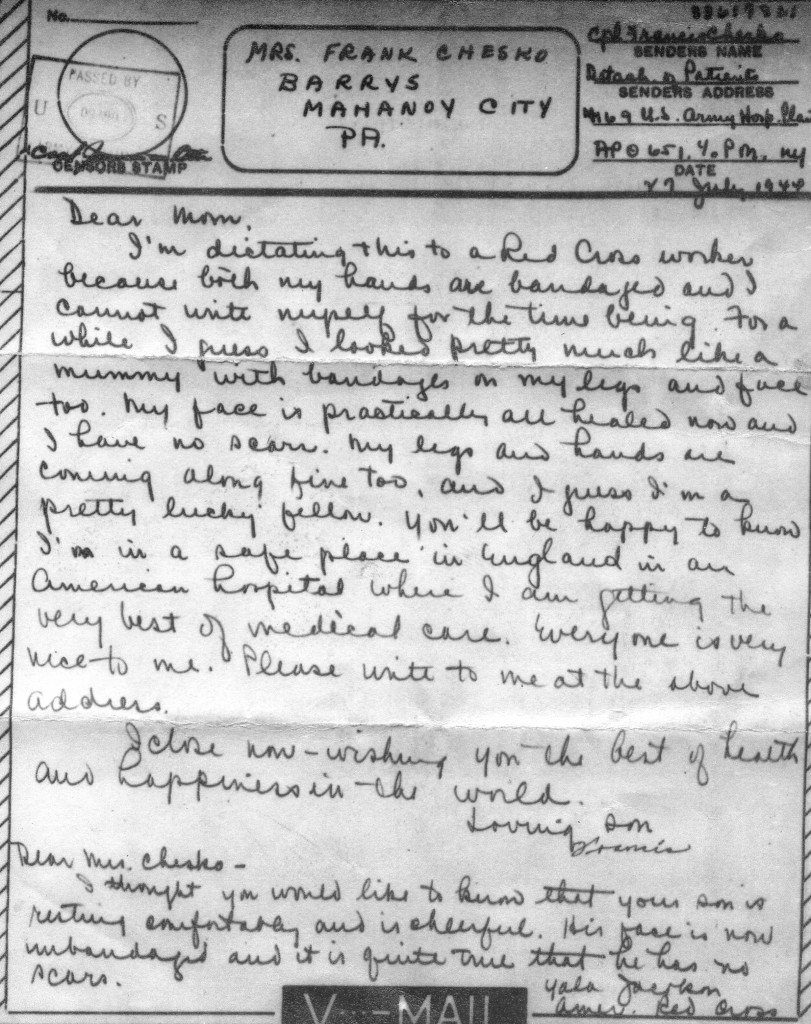 No.
33617831
MRS. FRANK CHESKO
BARRYS
MAHANOY CITY
PA.
Cpl. Francis Chesko
SENDERS NAME
Detach. of Patients
SENDERS ADDRESS
4169 U.S. Army Hosp. Plant
APO 651, % P.M. NY
DATE
27 July, 1944
PASSED BY
U S
CENSORS STAMP
Dear Mom,
I'm dictating this to a Red Cross worker
because both my hands are bandaged and I
cannot write myself for the time being. For a
while I guess I looked pretty much like a
mummy with bandages on my legs and face
too. My face is practically all healed now and
I have no scars. My legs and hands are
coming along fine too, and I guess I'm a
pretty lucky fellow. You'll be happy to know
I'm in a safe place in England in an
American hospital where I am getting the
very best of medical care. Everyone is very
nice to me. Please write to me at the above
address.
I close now - wishing you the best of health
and happiness in the world.
Loving son
Francis
Dear Mrs. Chesko -
I thought you would like to know that your son is
resting comfortably and is cheerful. His face is now
unbandaged and it is quite true that he has no
scars.
Jackson
Amer. Red Cross
V···-MAIL